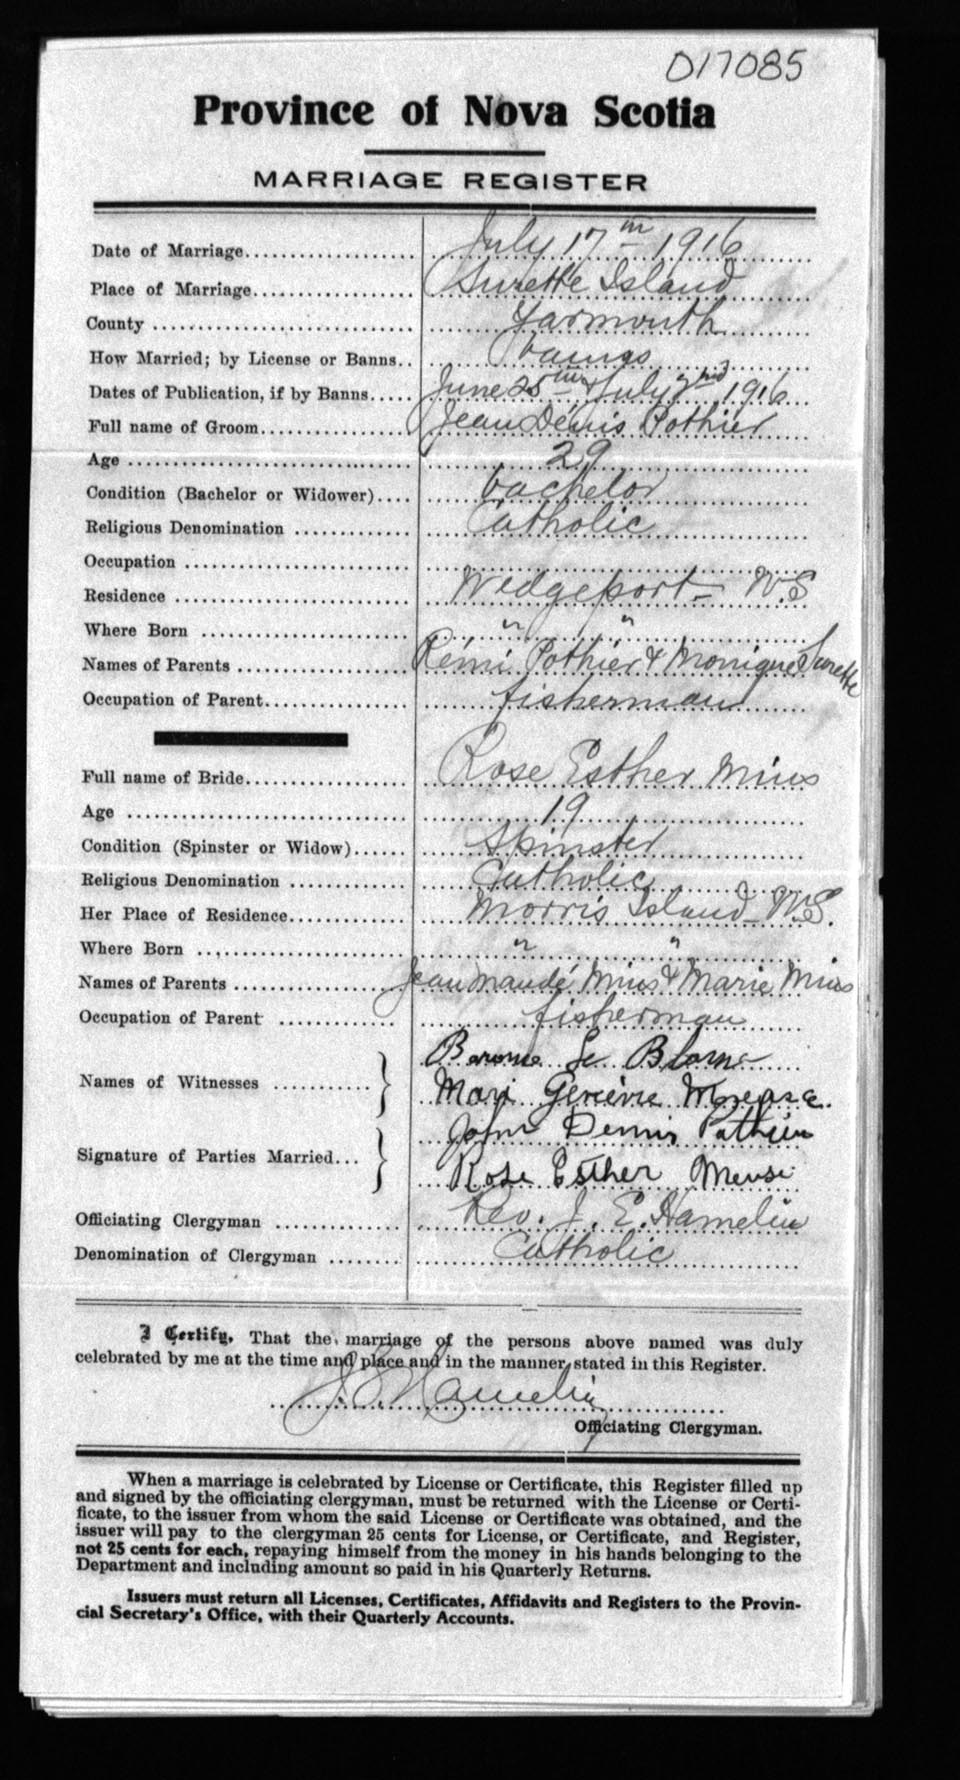 017085
Province of Nova Scotia
MARRIAGE REGISTER
Date of Marriage July 17th 1916
Place of Marriage Surette Island
County Yarmouth
How Married; by License or Banns banns
Dates of Publication, if by Banns June 25th & July 2nd 1916
Full name of Groom Jean Dénis Pothier
Age 29
Condition (Bachelor or Widower) bachelor
Religious Denomination Catholic
Occupation
Residence Wedgeport - N.S
Where Born " "
Names of Parents Rémi Pothier & Monique Surette
Occupation of Parent fisherman
Full name of Bride Rose Esther Mius
Age 19
Condition (Spinster or Widow) Spinster
Religious Denomination Catholic
Her Place of Residence Morris Island - N.S.
Where Born " "
Names of Parents Jean Mandé Mius & Marie Mius
Occupation of Parent fisherman
Names of Witnesses Le
Mari
Signature of Parties Married John Dennis Pothier
Rose Esther Meuse
Officiating Clergyman Rev. J. E. Hamelin
Denomination of Clergyman Catholic
I Certify, That the marriage of the persons above named was duly
celebrated by me at the time and place and in the manner stated in this Register.
J. E. Hamelin
Officiating Clergyman.
When a marriage is celebrated by License or Certificate, this Register filled up
and signed by the officiating clergyman, must be returned with the License or Certi-
ficate, to the issuer from whom the said License or Certificate was obtained, and the
issuer will pay to the clergyman 25 cents for License, or Certificate, and Register,
not 25 cents for each, repaying himself from the money in his hands belonging to the
Department and including amount so paid in his Quarterly Returns.
Issuers must return all Licenses, Certificates, Affidavits and Registers to the Provin-
cial Secretary's Office, with their Quarterly Accounts.